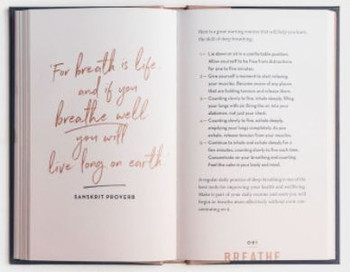 For breath is life
and if you
breathe well
you will
live long on earth.
SANSKRIT PROVERB
Here is a great morning routine that will help you learn
the skill of deep breathing:
1— Lie down or sit in a comfortable position.
After yourself to be free from distractions
for one to five minutes.
2— Give yourself a moment to start relaxing
your muscles. Become aware of any places
that are holding tension and release them.
3— Counting slowly to five, inhale deeply, filling
your lungs with air. Bring the air into your
abdomen, not just your chest.
4— Counting slowly to five, exhale deeply,
emptying your lungs completely. As you
exhale, release tension from your muscles.
5— Continue to inhale and exhale deeply for a
few minutes, counting slowly to five each time.
Concentrate on your breathing and counting.
Feel the calm in your body and mind.
A regular daily practice of deep breathing is one of the
best tools for improving your health and well being.
Make it part of your daily routine and soon you will
begin to breathe more effectively without even con-
centrating on it.
001
BREATHE